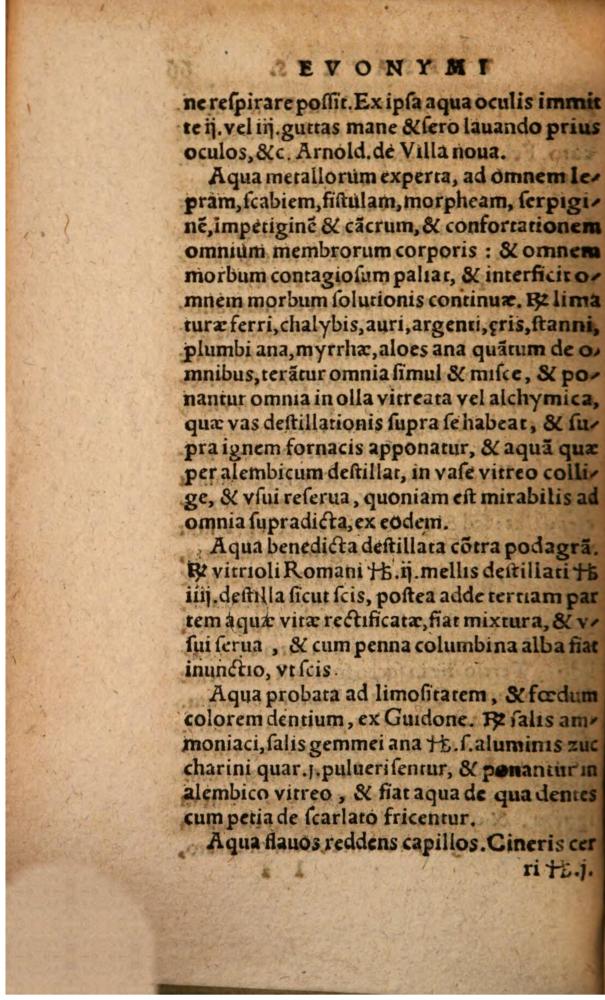 EVONYMI
ne reſpirare poſſit. Ex ipſa aqua oculis immit
te ij. vel iij. guttas mane & ſero lauando prius
oculos, &c. Arnold. de Villa noua.
Aqua metallorum experta, ad omnem le-
pram, ſcabiem, fiſtulam, morpheam, ſerpigi-
nẽ, impetiginẽ & cãcrum, & confortationem
omnium membrorum corporis : & omnem
morbum contagioſum paliat, & interficit o-
mnem morbum ſolutionis continuæ. ℞ lima
turæ ferri, chalybis, auri, argenti, ęris, ſtanni,
plumbi ana, myrrhæ, aloes ana quãtum de o-
mnibus, terãtur omnia ſimul & miſce, & po-
nantur omnia in olla vitreata vel alchymica,
quæ vas deſtillationis ſupra ſe habeat, & ſu-
pra ignem fornacis apponatur, & aquã quæ
per alembicum deſtillat, in vaſe vitreo colli-
ge, & vſui reſerua, quoniam eſt mirabilis ad
omnia ſupradicta, ex eodem.
Aqua benedicta deſtillata cõtra podagrã.
℞ vitrioli Romani ℔. ij. mellis deſtillati ℔
iiij. deſtilla ſicut ſcis, poſtea adde tertiam par
tem aquæ vitæ rectificatæ, fiat mixtura, & v-
ſui ſerua , & cum penna columbina alba fiat
inunctio, vt ſcis.
Aqua probata ad limoſitatem, & fœdum
colorem dentium, ex Guidone. ℞ ſalis am-
moniaci, ſalis gemmei ana ℔. ſ. aluminis zuc
charini quar. j. pulueriſentur, & ponantur in
alembico vitreo , & fiat aqua de qua dentes
cum petia de ſcarlato fricentur.
Aqua flauos reddens capillos. Cineris cer
ri ℔. j.